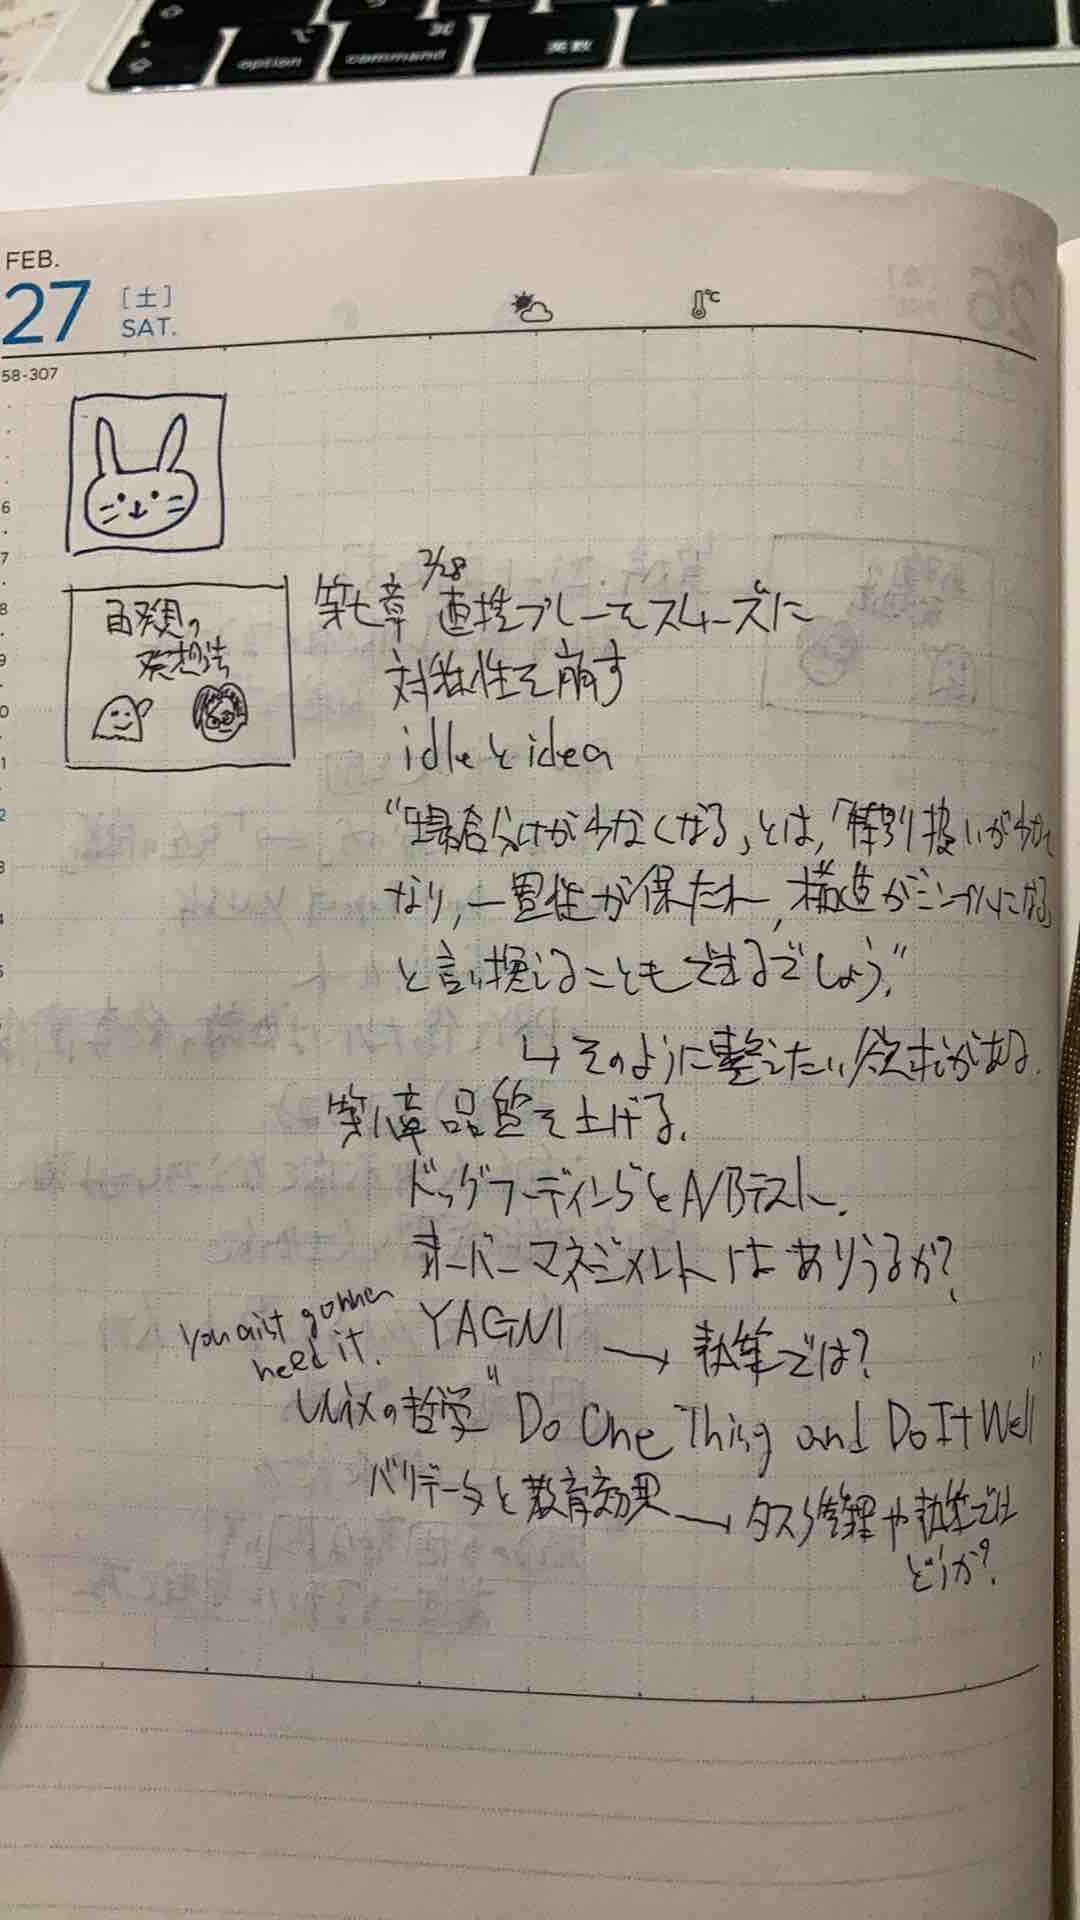 option
command
英数
FEB.
27
[土]
SAT.
℃
58-307
6
7
8
9
0
1
2
3
4
5
再発見の
発想法
2/28
第七章 直接プレーをスムーズに
対称性を崩す
idleとidea
"「場合分けが少なくなる」とは,「特別扱いが少なく
なり,一貫性が保たれ,構造がシンプルになる」
と言い換えることもできるでしょう。"
↳そのように整えたい欲求がある.
第八章 品質を上げる.
ドッグフーディングとA/Bテスト.
オーバーマネジメントはありうるか?
You aist gonna
need it.
YAGNI → 執筆では?
Unixの哲学 "Do One Thing and Do It Well"
バリデータと教育効果 → タスク管理や執筆では
どうか?